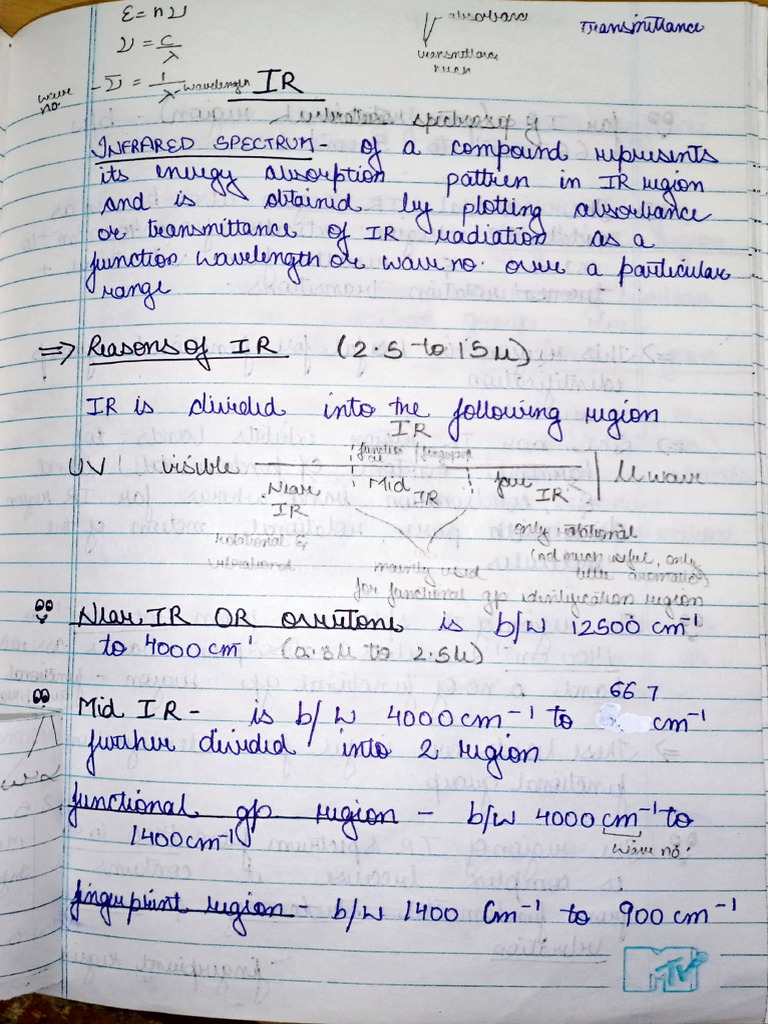 Ɛ = nν
absorbance
Transmittance
ν = c/λ
transmittance
much
wave no.
ν̅ = 1/λ wavelength
IR
INFRARED SPECTRUM - of a compound represents
its energy absorption pattren in IR region
and is obtained by plotting absorbance
or transmittance of IR radiation as a
function wavelength or wave no. over a particular
range
⇒ Reasons of IR (2.5 to 15 μ)
IR is divided into the following region
IR
UV visible Near IR Mid IR far IR μ wave
functional fingerprint
rotational &
vibrational
only rotational
(not much useful, only
mainly used
for functional gp identification region
Near IR OR overtone is b/w 12500 cm⁻¹
to 4000 cm⁻¹ (0.8μ to 2.5μ)
Mid IR - is b/w 4000 cm⁻¹ to 667 cm⁻¹
further divided into 2 region
functional gp region - b/w 4000 cm⁻¹ to
1400 cm⁻¹
wave no.
fingerprint region b/w 1400 cm⁻¹ to 900 cm⁻¹
MTV